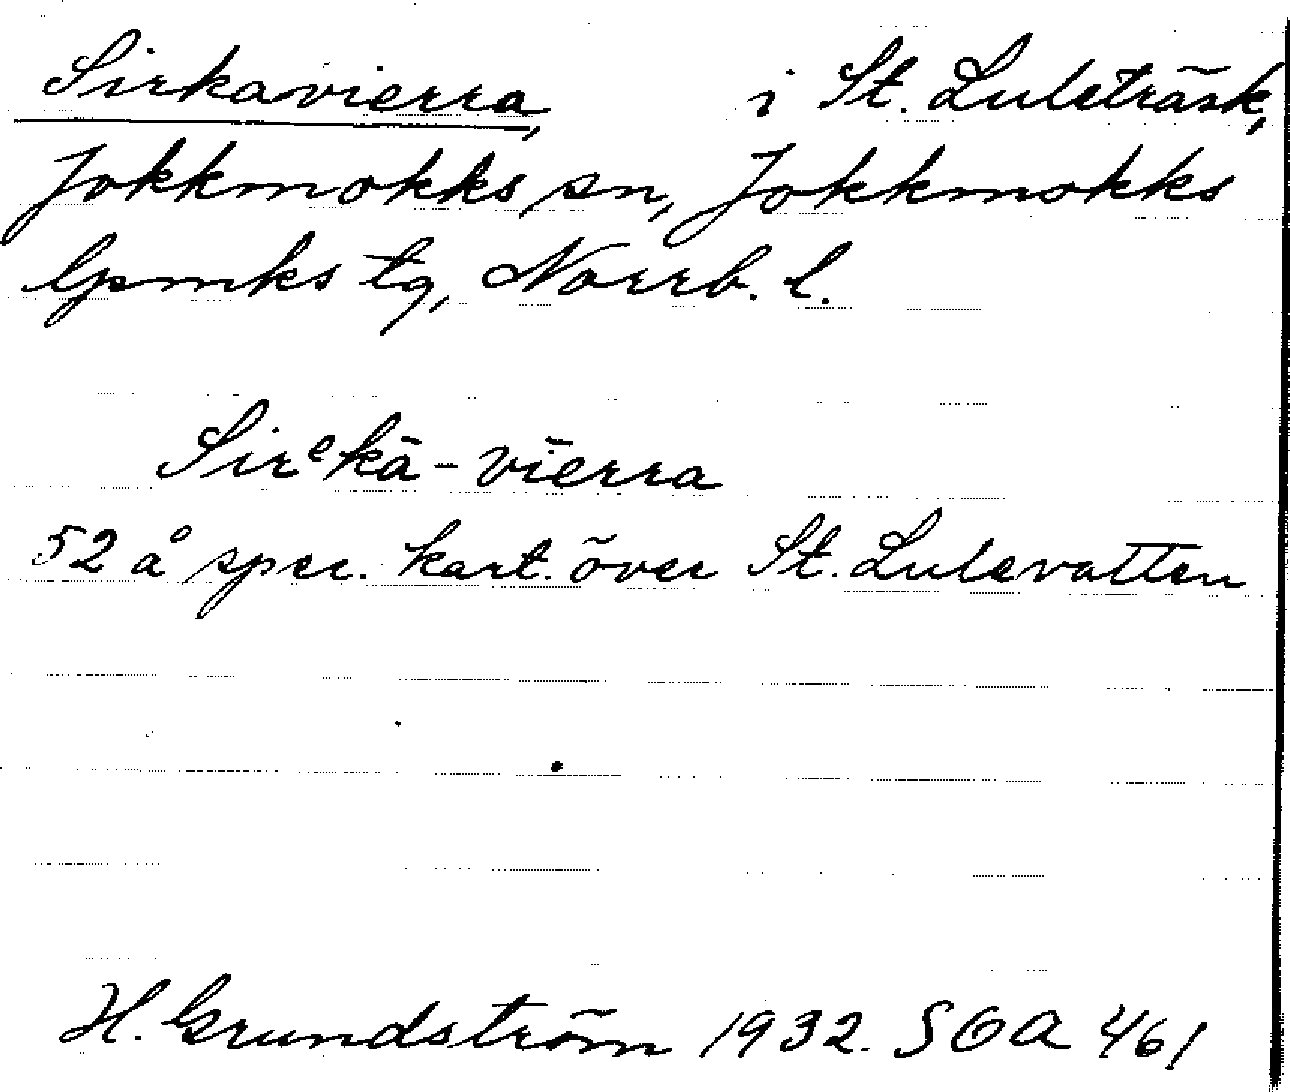 Sirkavierra, i St. Luleträsk,
Jokkmokks sn, Jokkmokks
lpmks tg, Norrb. l.
Sirᵉkā-vierra
52 å spec. kart. över St. Lulevatten
H. Grundström 1932. SOA 461